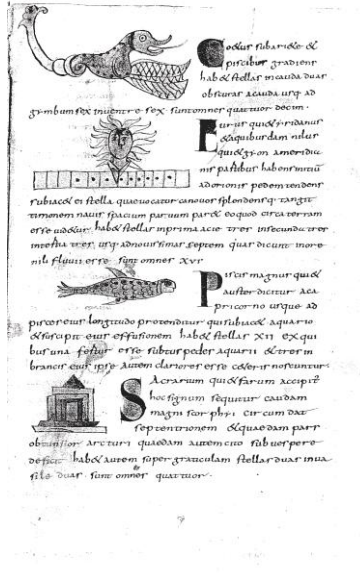 Coetus subariete &
piscibus gradiens
hab& stellas incauda duas
obscuras acauda usq ad
gymbum sex inventre sex sunt omnes quattuor decim
urus qui & eridanus
&aquibusdam nilus
qui& gion ameridia
nis partibus habens initiū
adorionis pedem tendens
subiac& ei stella quae vocatur canopos splendensq tangit
timonem navis spacium parvum par& eo quod circa terram
esse videtur hab& stellas inprima acie tres insecundu tres
intertia tres usq adnovissimas septem quas dicunt more
nili fluvii esse sunt omnes XVI
Piscis magnus qui&
auster dicitur aca
pricorno usque ad
pisces eius longitudo protenditur qui subiac& aquario
&suscipit eius effusionem hab& stellas XII ex qui
bus una fertur esse subtus pedes aquarii & tres in
brancis eius ipse autem clariores esse ceteris noscuntur
Sacrarum qui & farum accipit
hoc signum sequitur caudam
magni scorphi circum dat
septentrionem & quaedam pars
arcturi quaedam autem cito sub vespere
deficit hab& autem super graticulam stellas duas inva
sile duas sunt omnes quattuor